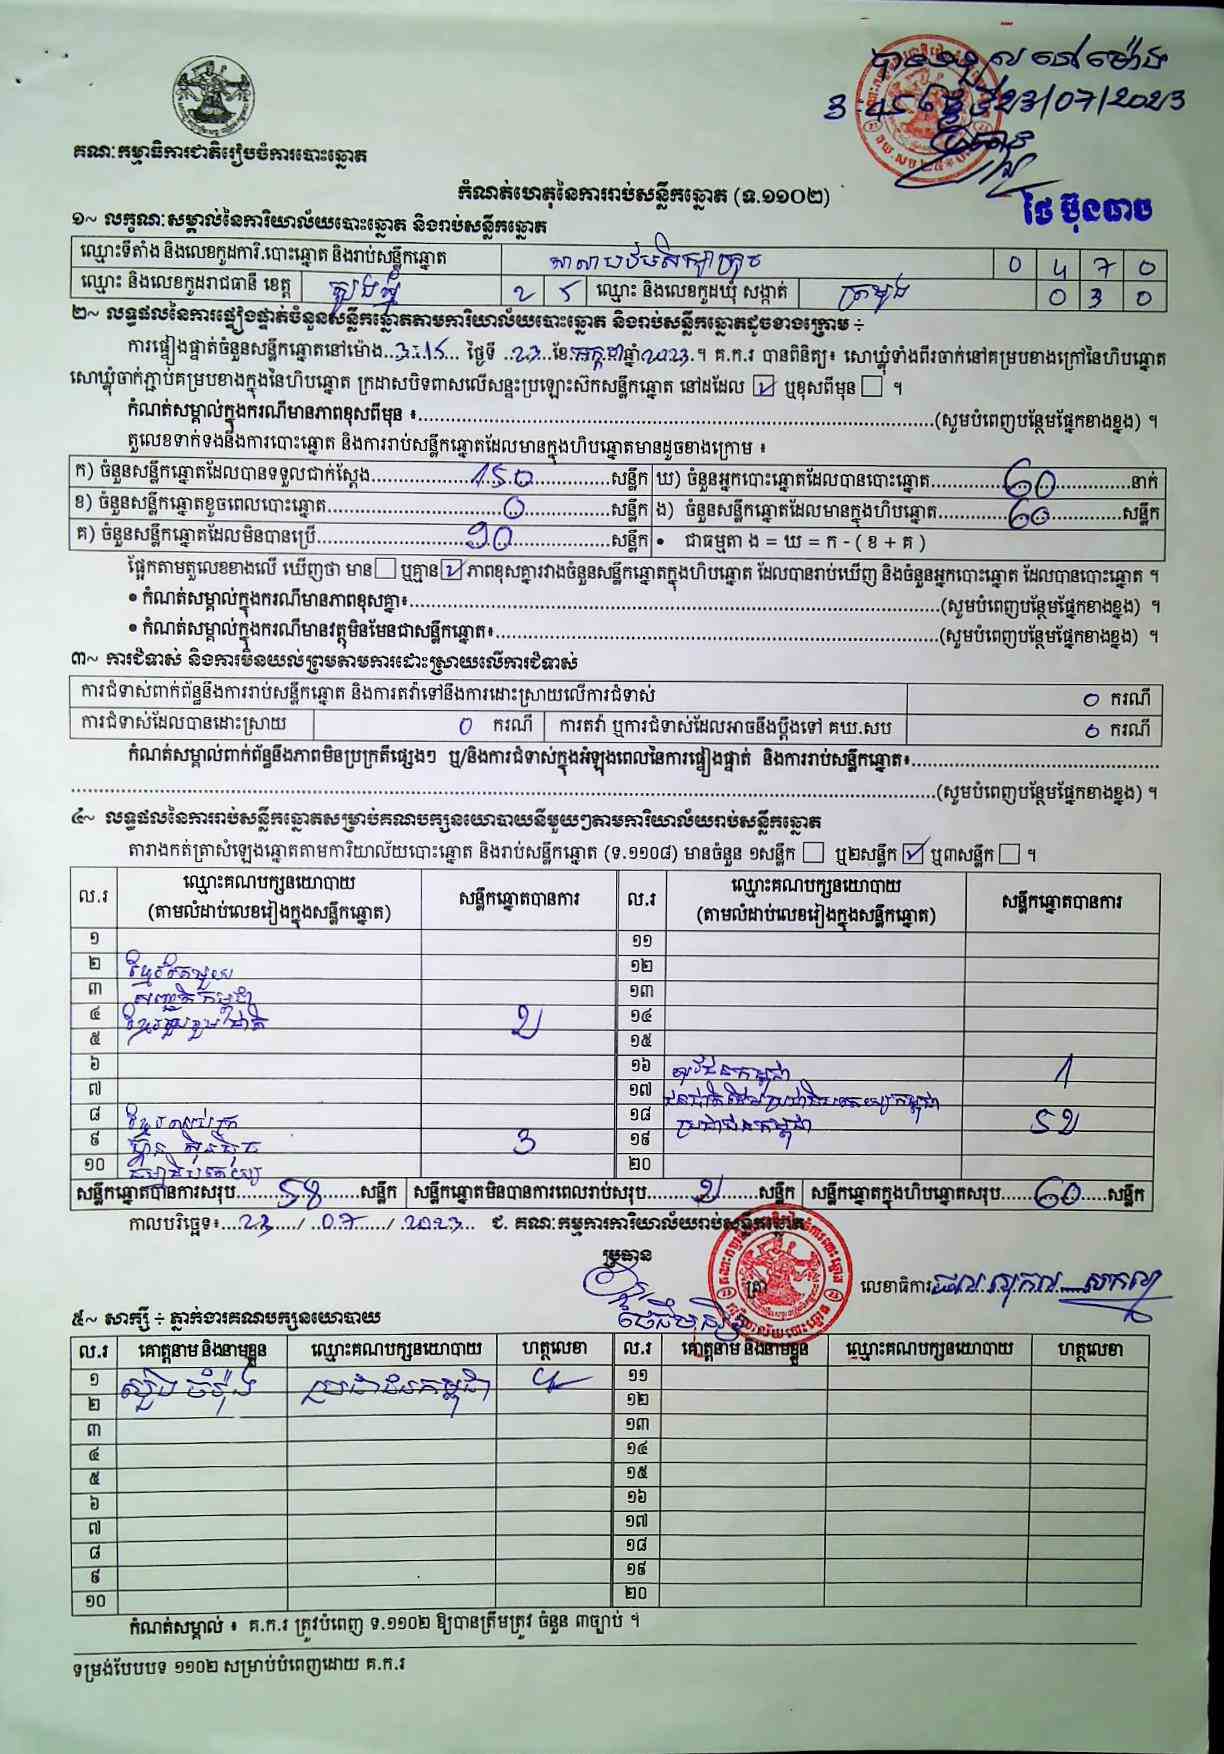 បានទទួលនៅម៉ោង
3:45 ថ្ងៃទី23/07/2023
ថៃ ប៊ុនធាប
គណៈកម្មាធិការជាតិរៀបចំការបោះឆ្នោត
កំណត់ហេតុនៃការរាប់សន្លឹកឆ្នោត (ទ.១១០២)
១~ លក្ខណៈសម្គាល់នៃការិយាល័យបោះឆ្នោត និងរាប់សន្លឹកឆ្នោត
ឈ្មោះទីតាំង និងលេខកូដការិ.បោះឆ្នោត និងរាប់សន្លឹកឆ្នោត 0 4 7 0
ឈ្មោះ និងលេខកូដរាជធានី ខេត្ត ត្បូងឃ្មុំ 2 5 ឈ្មោះ និងលេខកូដឃុំ សង្កាត់ 0 3 0
២~ លទ្ធផលនៃការផ្ទៀងផ្ទាត់ចំនួនសន្លឹកឆ្នោតតាមការិយាល័យបោះឆ្នោត និងរាប់សន្លឹកឆ្នោតដូចខាងក្រោម ÷
ការផ្ទៀងផ្ទាត់ចំនួនសន្លឹកឆ្នោតនៅម៉ោង..3:15... ថ្ងៃទី ..23..ខែកក្កដាឆ្នាំ2023.។ គ.ក.រ បានពិនិត្យ៖ សោឃ្លុំទាំងពីរចាក់នៅគម្របខាងក្រៅនៃហិបឆ្នោត
សោឃ្លុំចាក់ភ្ជាប់គម្របខាងក្នុងនៃហិបឆ្នោត ក្រដាសបិទពាសលើសន្ទះប្រឡោះស៊កសន្លឹកឆ្នោត នៅដដែល ☑ ឬខុសពីមុន ☐ ។
កំណត់សម្គាល់ក្នុងករណីមានភាពខុសពីមុន ៖.....(សូមបំពេញបន្ថែមផ្នែកខាងខ្នង) ។
តួលេខទាក់ទងនឹងការបោះឆ្នោត និងការរាប់សន្លឹកឆ្នោតដែលមានក្នុងហិបឆ្នោតមានដូចខាងក្រោម ៖
ក) ចំនួនសន្លឹកឆ្នោតដែលបានទទួលជាក់ស្តែង.....150.....សន្លឹក ឃ) ចំនួនអ្នកបោះឆ្នោតដែលបានបោះឆ្នោត.....60.....នាក់
ខ) ចំនួនសន្លឹកឆ្នោតខូចពេលបោះឆ្នោត.....0.....សន្លឹក ង) ចំនួនសន្លឹកឆ្នោតដែលមានក្នុងហិបឆ្នោត.....60.....សន្លឹក
គ) ចំនួនសន្លឹកឆ្នោតដែលមិនបានប្រើ.....90.....សន្លឹក • ជាធម្មតា ង = ឃ = ក - ( ខ + គ )
ផ្អែកតាមតួលេខខាងលើ ឃើញថា មាន ☐ ឬគ្មាន ☑ ភាពខុសគ្នារវាងចំនួនសន្លឹកឆ្នោតក្នុងហិបឆ្នោត ដែលបានរាប់ឃើញ និងចំនួនអ្នកបោះឆ្នោត ដែលបានបោះឆ្នោត ។
• កំណត់សម្គាល់ក្នុងករណីមានភាពខុសគ្នា៖.....(សូមបំពេញបន្ថែមផ្នែកខាងខ្នង) ។
• កំណត់សម្គាល់ក្នុងករណីមានវត្ថុមិនមែនជាសន្លឹកឆ្នោត៖.....(សូមបំពេញបន្ថែមផ្នែកខាងខ្នង) ។
៣~ ការជំទាស់ និងការមិនយល់ព្រមតាមការដោះស្រាយលើការជំទាស់
ការជំទាស់ពាក់ព័ន្ធនឹងការរាប់សន្លឹកឆ្នោត និងការតវ៉ាទៅនឹងការដោះស្រាយលើការជំទាស់ 0 ករណី
ការជំទាស់ដែលបានដោះស្រាយ 0 ករណី ការតវ៉ា ឬការជំទាស់ដែលអាចនឹងប្តឹងទៅ គឃ.សប 0 ករណី
កំណត់សម្គាល់ពាក់ព័ន្ធនឹងភាពមិនប្រក្រតីផ្សេងៗ ឬ/និងការជំទាស់ក្នុងអំឡុងពេលនៃការផ្ទៀងផ្ទាត់ និងការរាប់សន្លឹកឆ្នោត៖.....
.....(សូមបំពេញបន្ថែមផ្នែកខាងខ្នង) ។
៤~ លទ្ធផលនៃការរាប់សន្លឹកឆ្នោតសម្រាប់គណបក្សនយោបាយនីមួយៗតាមការិយាល័យរាប់សន្លឹកឆ្នោត
តារាងកត់ត្រាសំឡេងឆ្នោតតាមការិយាល័យបោះឆ្នោត និងរាប់សន្លឹកឆ្នោត (ទ.១១០៨) មានចំនួន ១សន្លឹក ☐ ឬ២សន្លឹក ☑ ឬ៣សន្លឹក ☐ ។
ល.រ ឈ្មោះគណបក្សនយោបាយ (តាមលំដាប់លេខរៀងក្នុងសន្លឹកឆ្នោត) សន្លឹកឆ្នោតបានការ ល.រ ឈ្មោះគណបក្សនយោបាយ (តាមលំដាប់លេខរៀងក្នុងសន្លឹកឆ្នោត) សន្លឹកឆ្នោតបានការ
១ ១១
២ ខ្មែរតែមួយ ១២
៣ សញ្ជាតិកម្ពុជា ១៣
៤ ខ្មែររួបរួមជាតិ 2 ១៤
៥ ១៥
៦ ១៦ យុវជនកម្ពុជា 1
៧ ១៧ ជនជាតិដើមប្រជាធិបតេយ្យកម្ពុជា
៨ ១៨ ប្រជាជនកម្ពុជា 52
៩ ហ៊្វុនស៊ិនប៉ិច 3 ១៩
១០ ធម្មាធិបតេយ្យ ២០
សន្លឹកឆ្នោតបានការសរុប.....58.....សន្លឹក សន្លឹកឆ្នោតមិនបានការពេលរាប់សរុប.....2.....សន្លឹក សន្លឹកឆ្នោតក្នុងហិបឆ្នោតសរុប.....60.....សន្លឹក
កាលបរិច្ឆេទ៖...23.../..07.../ 2023... ជ. គណៈកម្មការការិយាល័យរាប់សន្លឹកឆ្នោត
ប្រធាន
ត្រា លេខាធិការ
៥~ សាក្សី ÷ ភ្នាក់ងារគណបក្សនយោបាយ
ល.រ គោត្តនាម និងនាមខ្លួន ឈ្មោះគណបក្សនយោបាយ ហត្ថលេខា ល.រ គោត្តនាម និងនាមខ្លួន ឈ្មោះគណបក្សនយោបាយ ហត្ថលេខា
១ ប្រជាជនកម្ពុជា ១១
២ ១២
៣ ១៣
៤ ១៤
៥ ១៥
៦ ១៦
៧ ១៧
៨ ១៨
៩ ១៩
១០ ២០
កំណត់សម្គាល់ ៖ គ.ក.រ ត្រូវបំពេញ ទ.១១០២ ឱ្យបានត្រឹមត្រូវ ចំនួន ៣ច្បាប់ ។
ទម្រង់បែបបទ ១១០២ សម្រាប់បំពេញដោយ គ.ក.រ